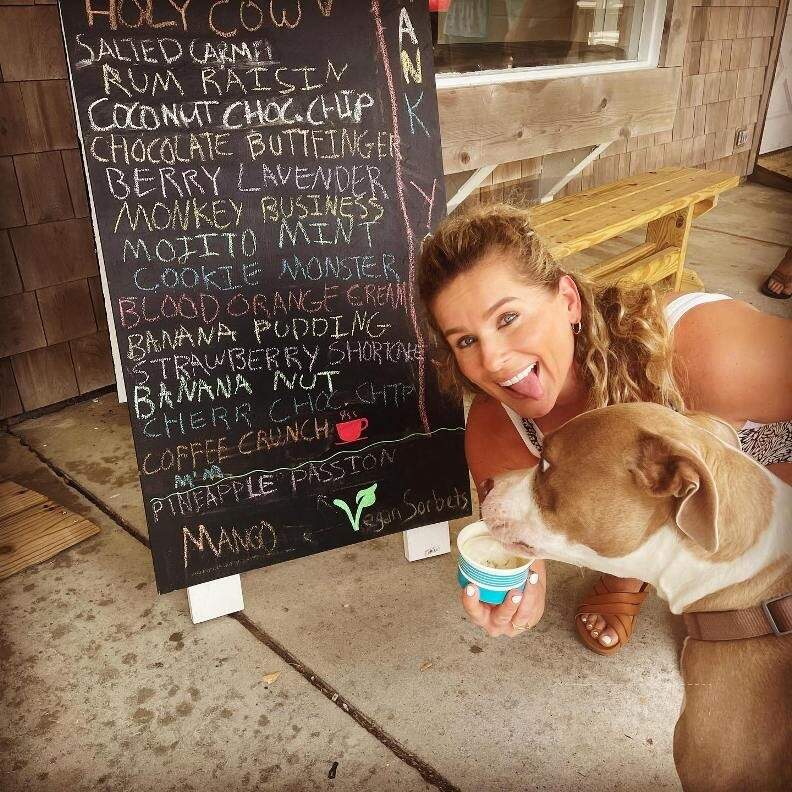 HOLY COW
SALTED CARMEL
RUM RAISIN
COCONUT CHOC. CHIP
CHOCOLATE BUTTFINGER
BERRY LAVENDER
MONKEY BUSINESS
MOJITO MINT
COOKIE MONSTER
BLOOD ORANGE CREAM
BANANA PUDDING
STRAWBERRY SHORTCAKE
BANANA NUT
CHERR CHOC. CHIP
COFFEE CRUNCH
PINEAPPLE PASSION
MANGO
Vegan Sorbets
A
N
K
Y